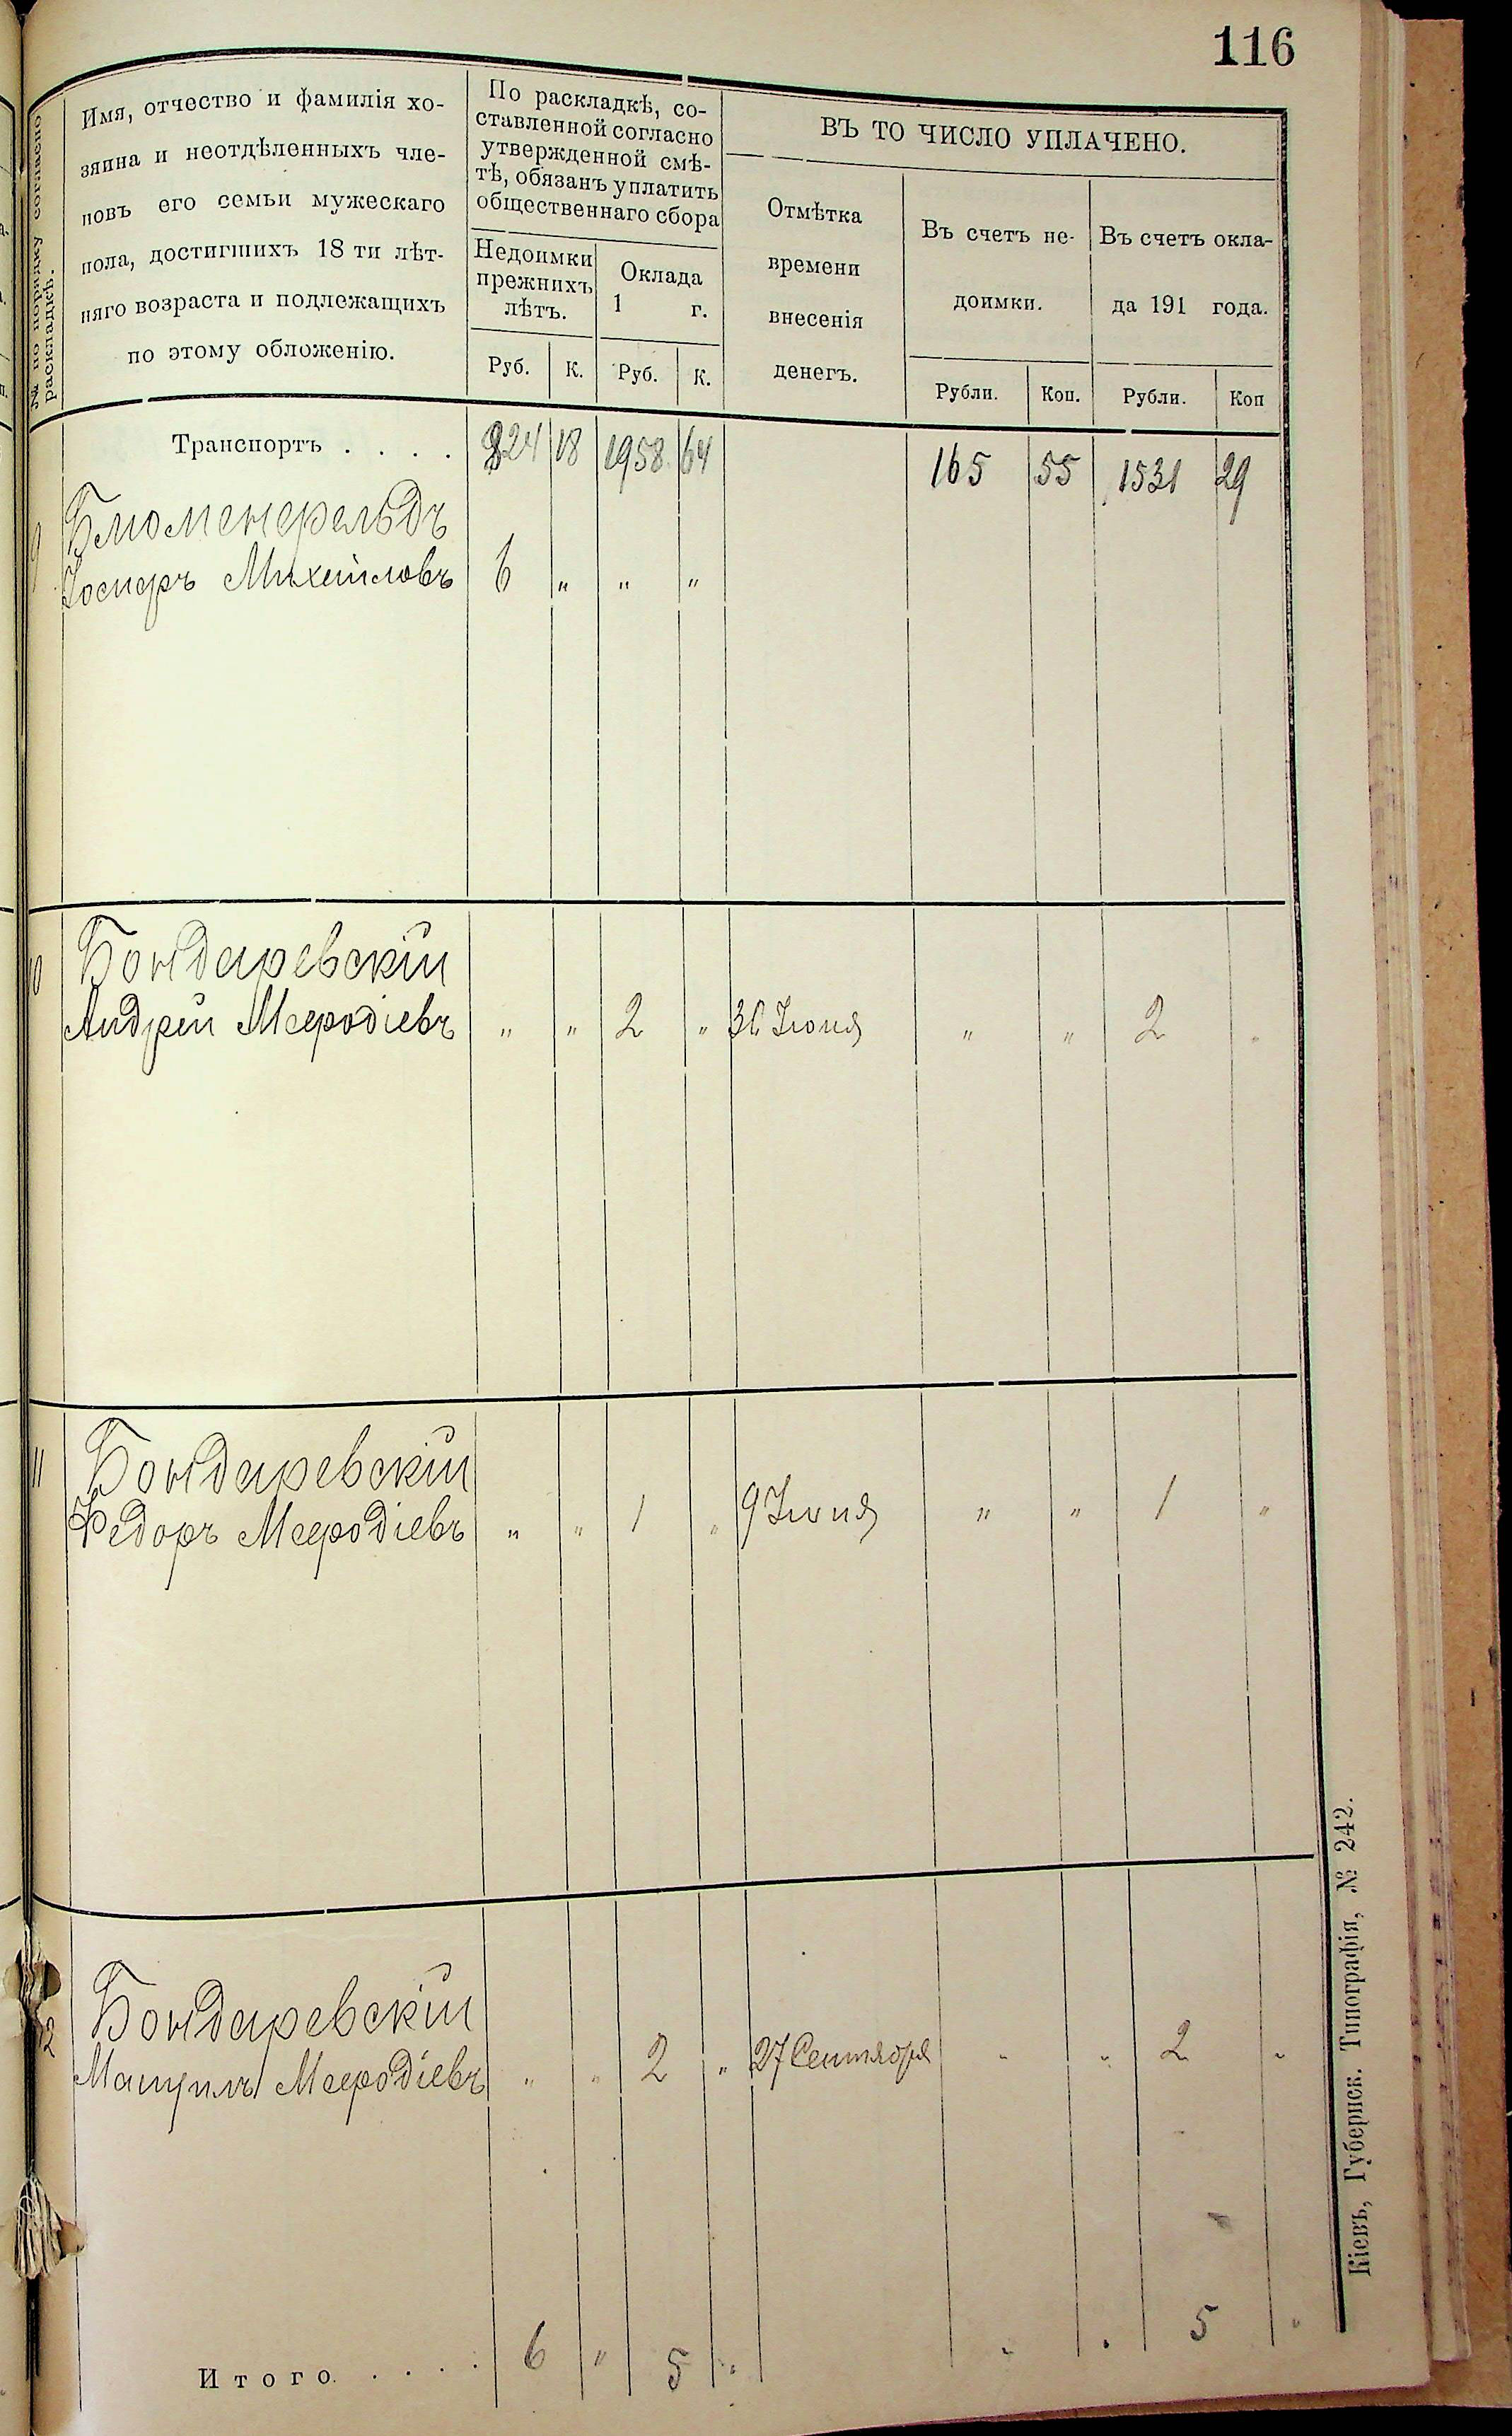 116
№ по порядку согласно
раскладкѣ.
Имя, отчество и фамилія хо-
зяина и неотдѣленныхъ чле-
новъ его семьи мужескаго
пола, достигшихъ 18 ти лѣт-
няго возраста и подлежащихъ
по этому обложенію.
По раскладкѣ, со-
ставленной согласно
утвержденной смѣ-
тѣ, обязанъ уплатить
общественнаго сбора
Недоимки
прежнихъ
лѣтъ.
Оклада
1 г.
Руб. К. Руб. К.
ВЪ ТО ЧИСЛО УПЛАЧЕНО.
Отмѣтка
времени
внесенія
денегъ.
Въ счетъ не-
доимки.
Рубли. Коп.
Въ счетъ окла-
да 191 года.
Рубли. Коп
Транспортъ . . . . 324 18 1958 64 165 55 1531 29
9 Блюменфельдъ
Іосифъ Михайловъ 6 " " "
10 Бондаревскій
Андрей Мефодіевъ " " 2 " 30 Іюня " " 2 "
11 Бондаревскій
Федоръ Мефодіевъ " " 1 " 9 Іюня " " 1 "
12 Бондаревскій
Мефодіевъ " " 2 " 27 Сентября " " 2 "
Итого. . . . . 6 " 5 " " " 5 "
Кіевъ, Губернск. Типографія, № 242.